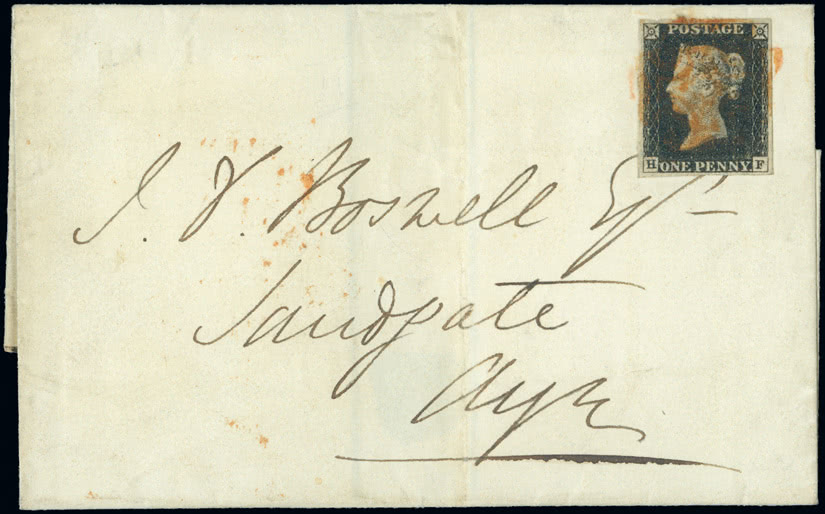 POSTAGE
H ONE PENNY F
J. D. Boswell Esqr
Sandgate
Ayr